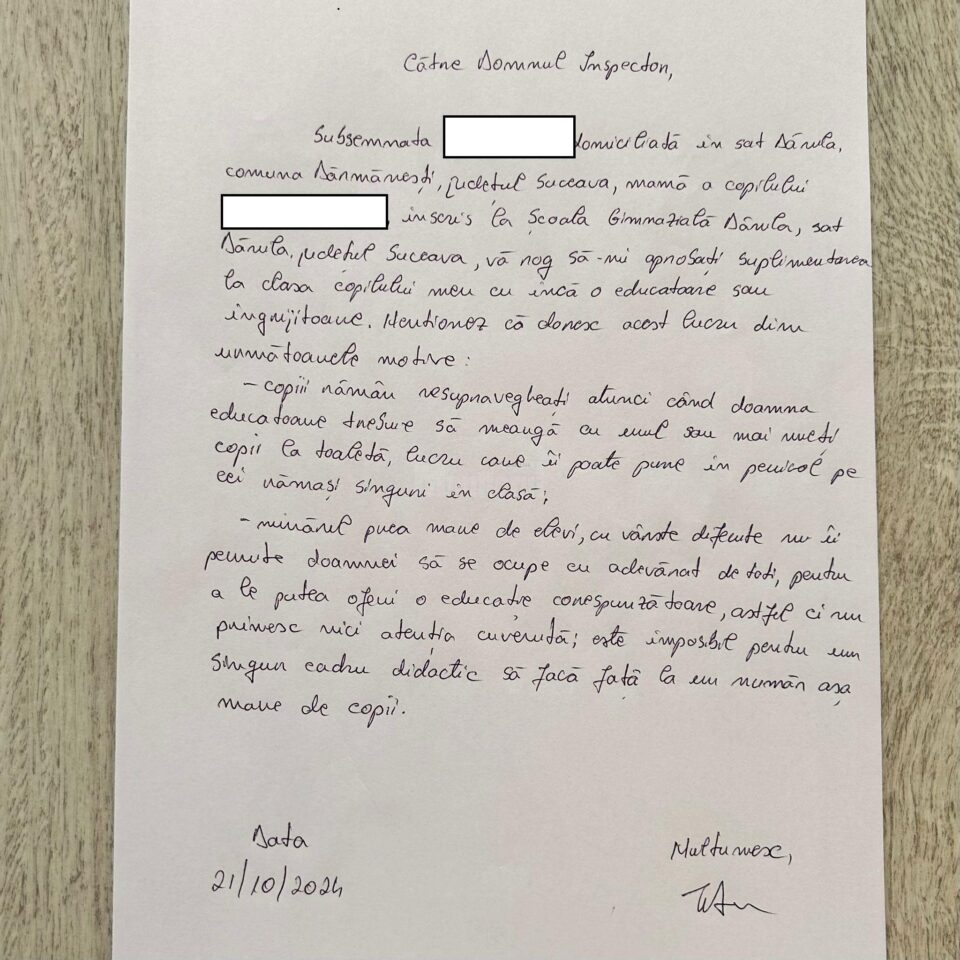 Către Domnul Inspector,
Subsemnata domiciliată în sat Dănila,
comuna Dărmănești, județul Suceava, mamă a copilului
înscris la Școala Gimnazială Dănila, sat
Dănila, județul Suceava, vă rog să-mi aprobați suplimentarea
la clasa copilului meu cu încă o educatoare sau
îngrijitoare. Mentionez că doresc acest lucru din
următoarele motive:
- copiii rămân nesupravegheați atunci când doamna
educatoare trebuie să meargă cu unul sau mai mulți
copii la toaletă, lucru care îi poate pune în pericol pe
cei rămași singuri în clasă;
- numărul prea mare de elevi, cu vârste diferite nu îi
permite doamnei să se ocupe cu adevărat de toti, pentru
a le putea oferi o educație corespunzătoare, astfel ei nu
primesc nici atenția cuvenită; este imposibil pentru un
singur cadru didactic să facă față la un număr așa
mare de copii.
Data
21/10/2024
Multumesc,